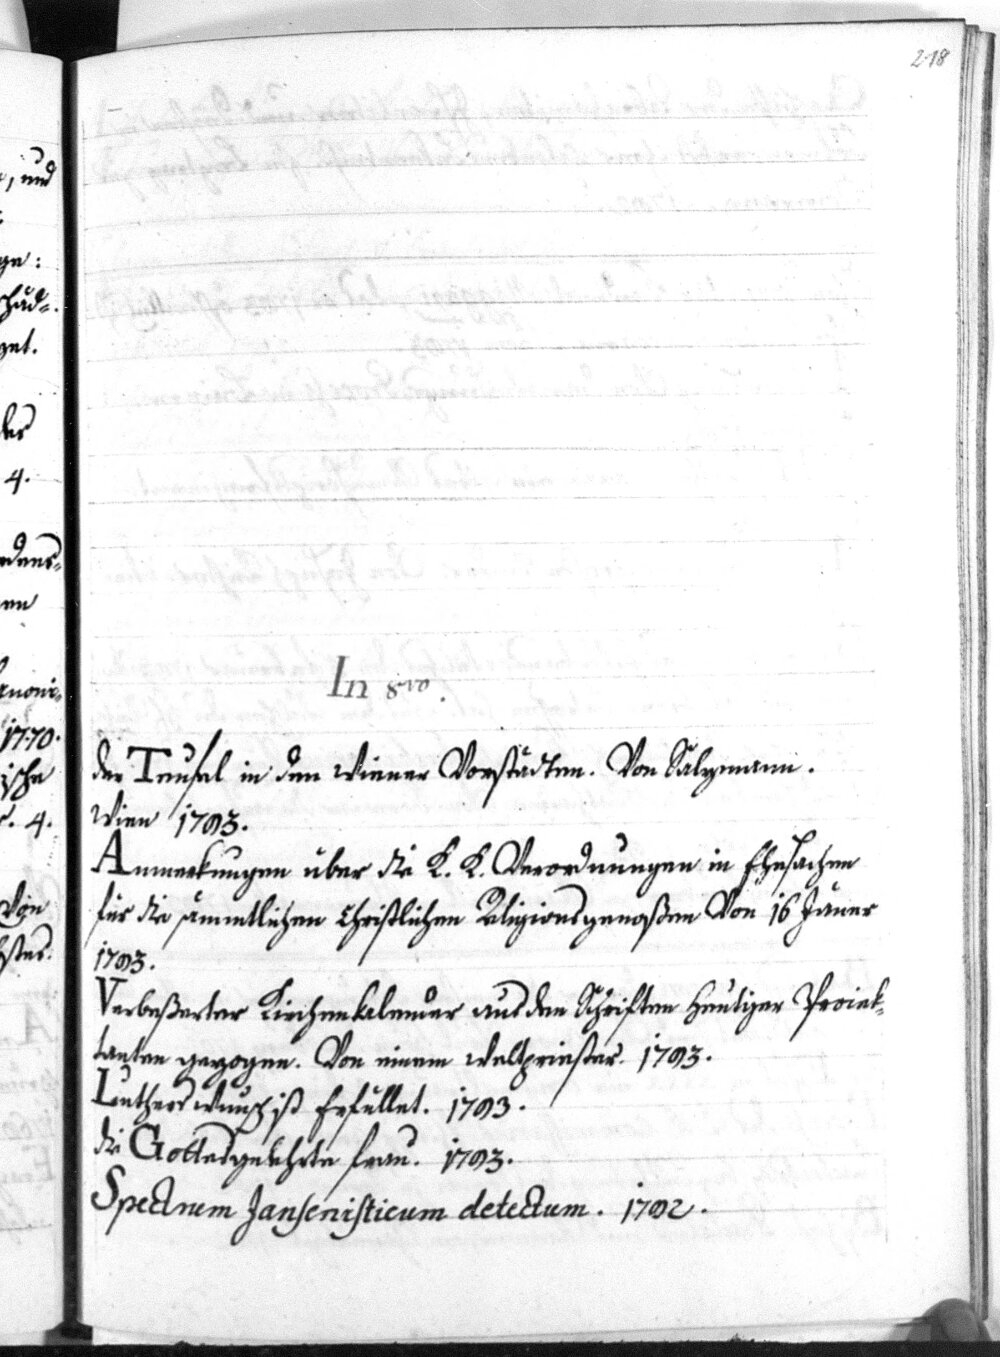 und
4.
1770.
4.
Von
218
In 8vo.
der Teufel in den Wiener Vorstädten. Von Salzmann.
Wien 1783.
Anmerkungen über die K. K. Verordnungen in Ehesachen
für die sämmtlichen christlichen Religionsgenoßen Von 16 Jäner
1783.
Verbeßerter Kirchenkalender aus den Schriften heutiger Projek=
tanten gezogen. Von einem Weltpriester. 1783.
Luthers Wunsch ist Erfüllet. 1783.
die Gottesgelehrte Frau. 1783.
Spectrum Jansenisticum detectum. 1782.